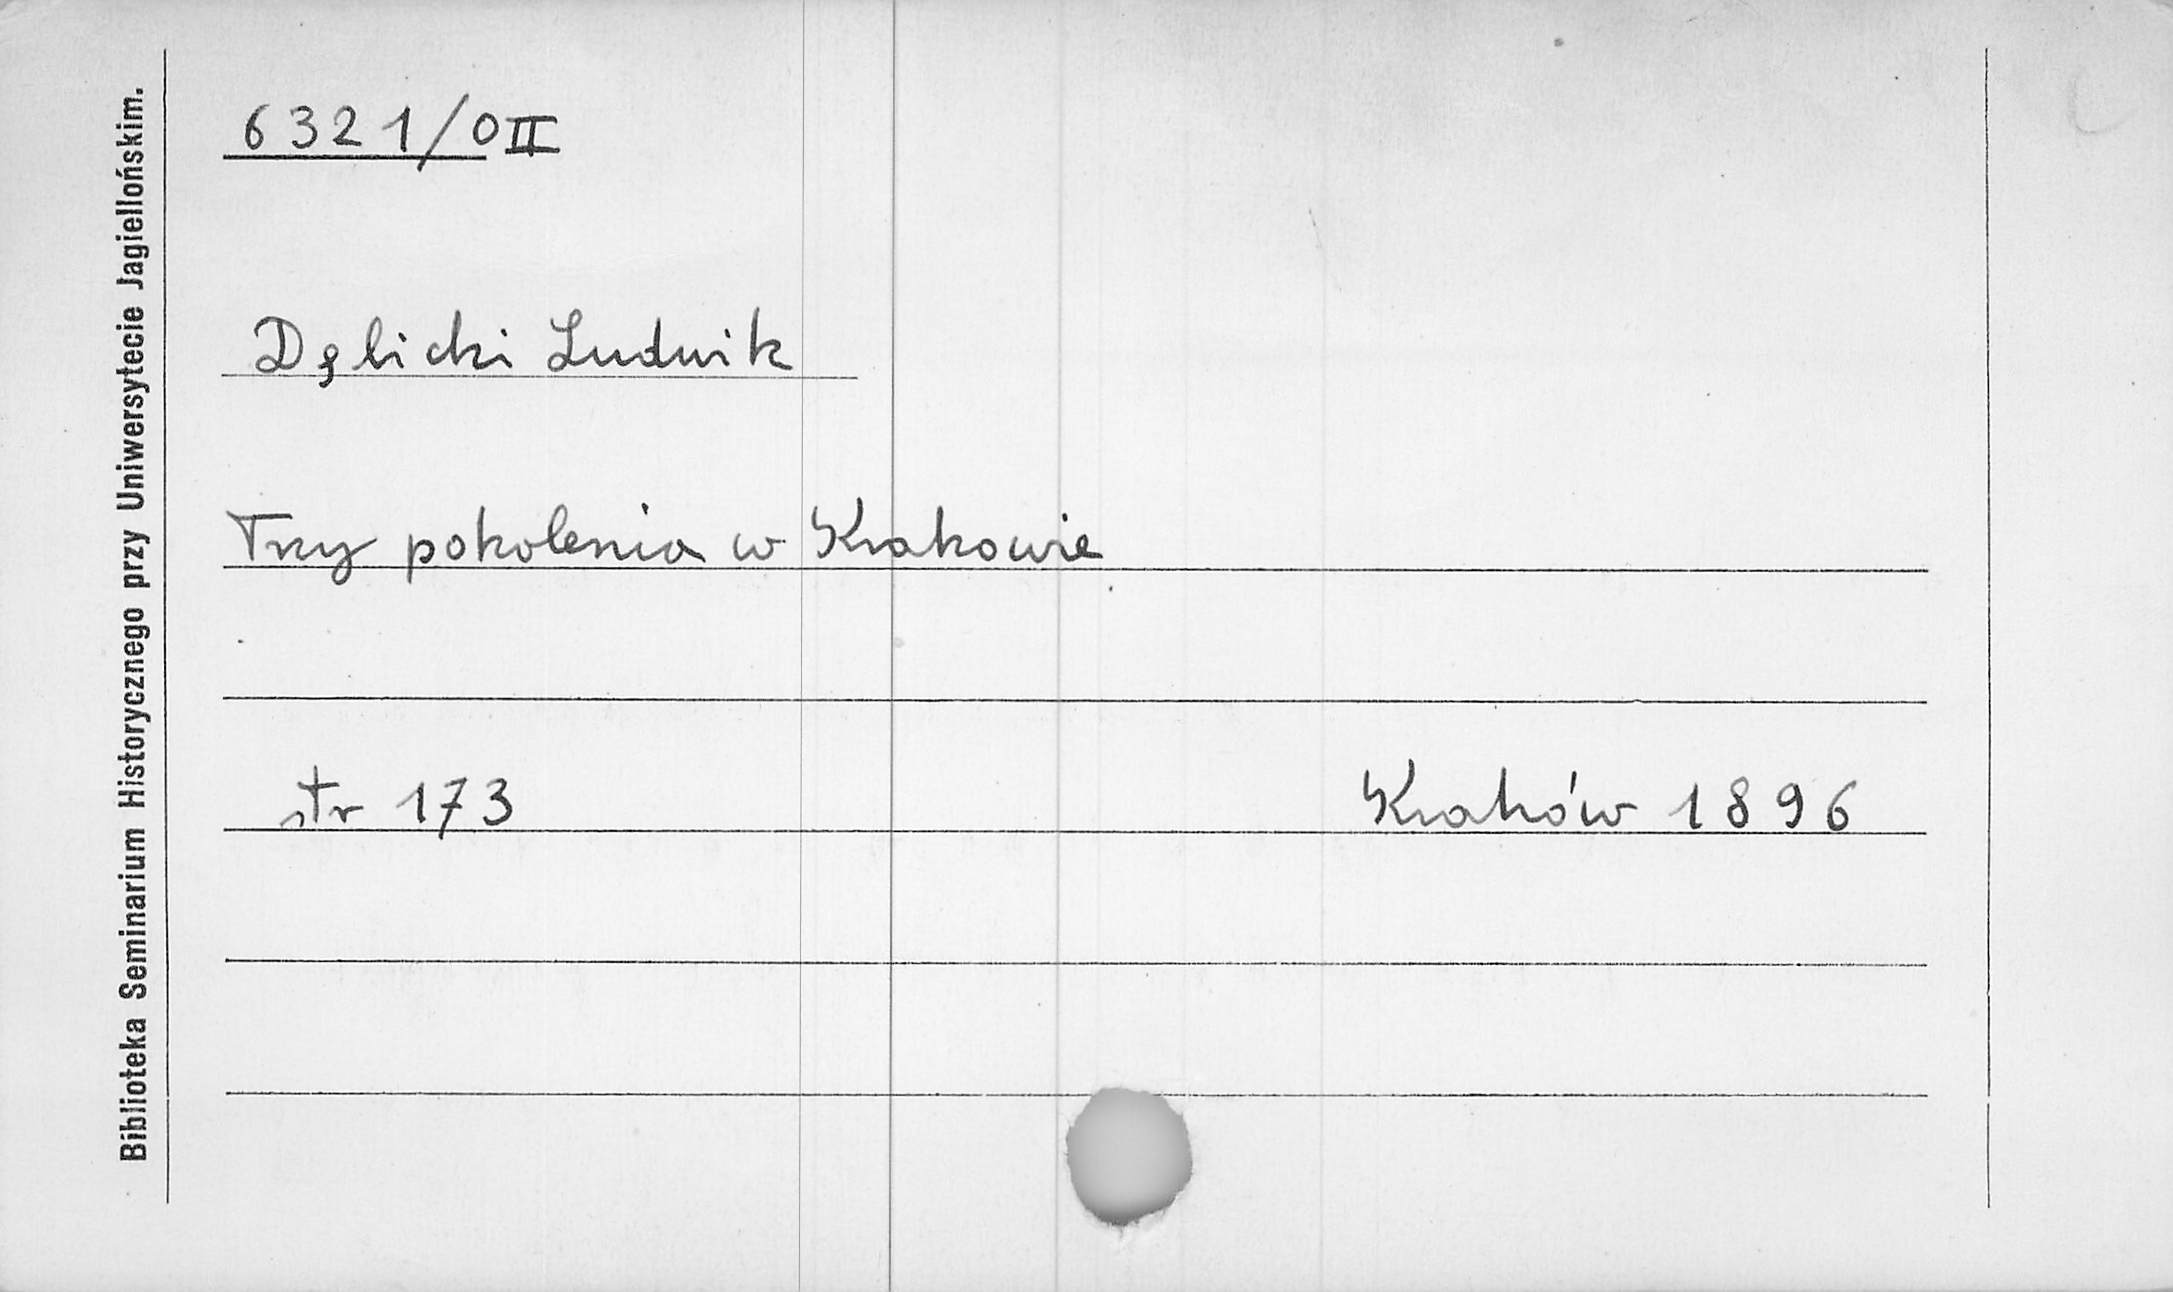 Biblioteka Seminarium Historycznego przy Uniwersytecie Jagiellońskim.
6321/0 II
Dębicki Ludwik
Trzy pokolenia w Krakowie
str 173 Kraków 1896